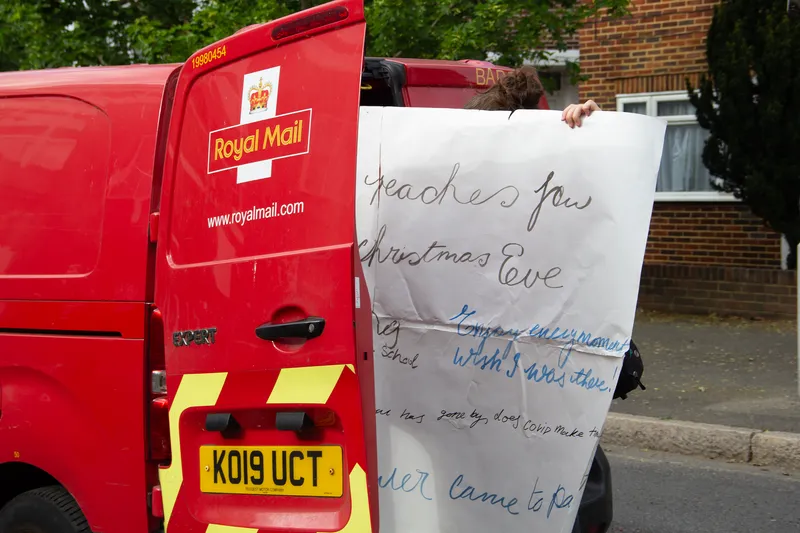 19980454
Royal Mail
www.royalmail.com
EXPERT
KO19 UCT
reaches you
Christmas Eve
Enjoy every moment
school
wish I was there!
has gone by, does COVID make
came to pa